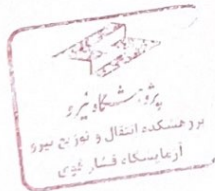 پژوهشگاه نیرو
پژوهشکده انتقال و توزیع نیرو
آزمایشگاه فشار قوی